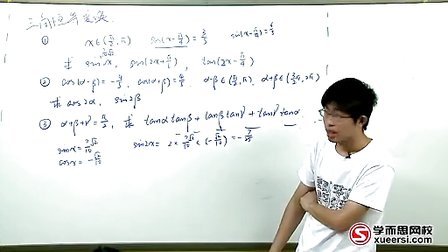 三角恒等变换
① x∈(π/2, π) sin(x-π/4)=3/5 sin(x-π/4)=3/5
求 sin x, sin(2x+π/3), tan(2x-π/4)
② cos(α-β)=-4/5 cos(α+β)=4/5 α-β∈(π/2, π) α+β∈(3/2π, 2π)
求 cos2α, sin2β
③ α+β+γ=π/2, 求 tanα tanβ + tanβ tanγ + tanγ tanα
sin x = 7√2/10 sin2x = 2×7√2/10×(-√2/10) = -7/25
cos x = -√2/10
学而思网校
xueersi.com